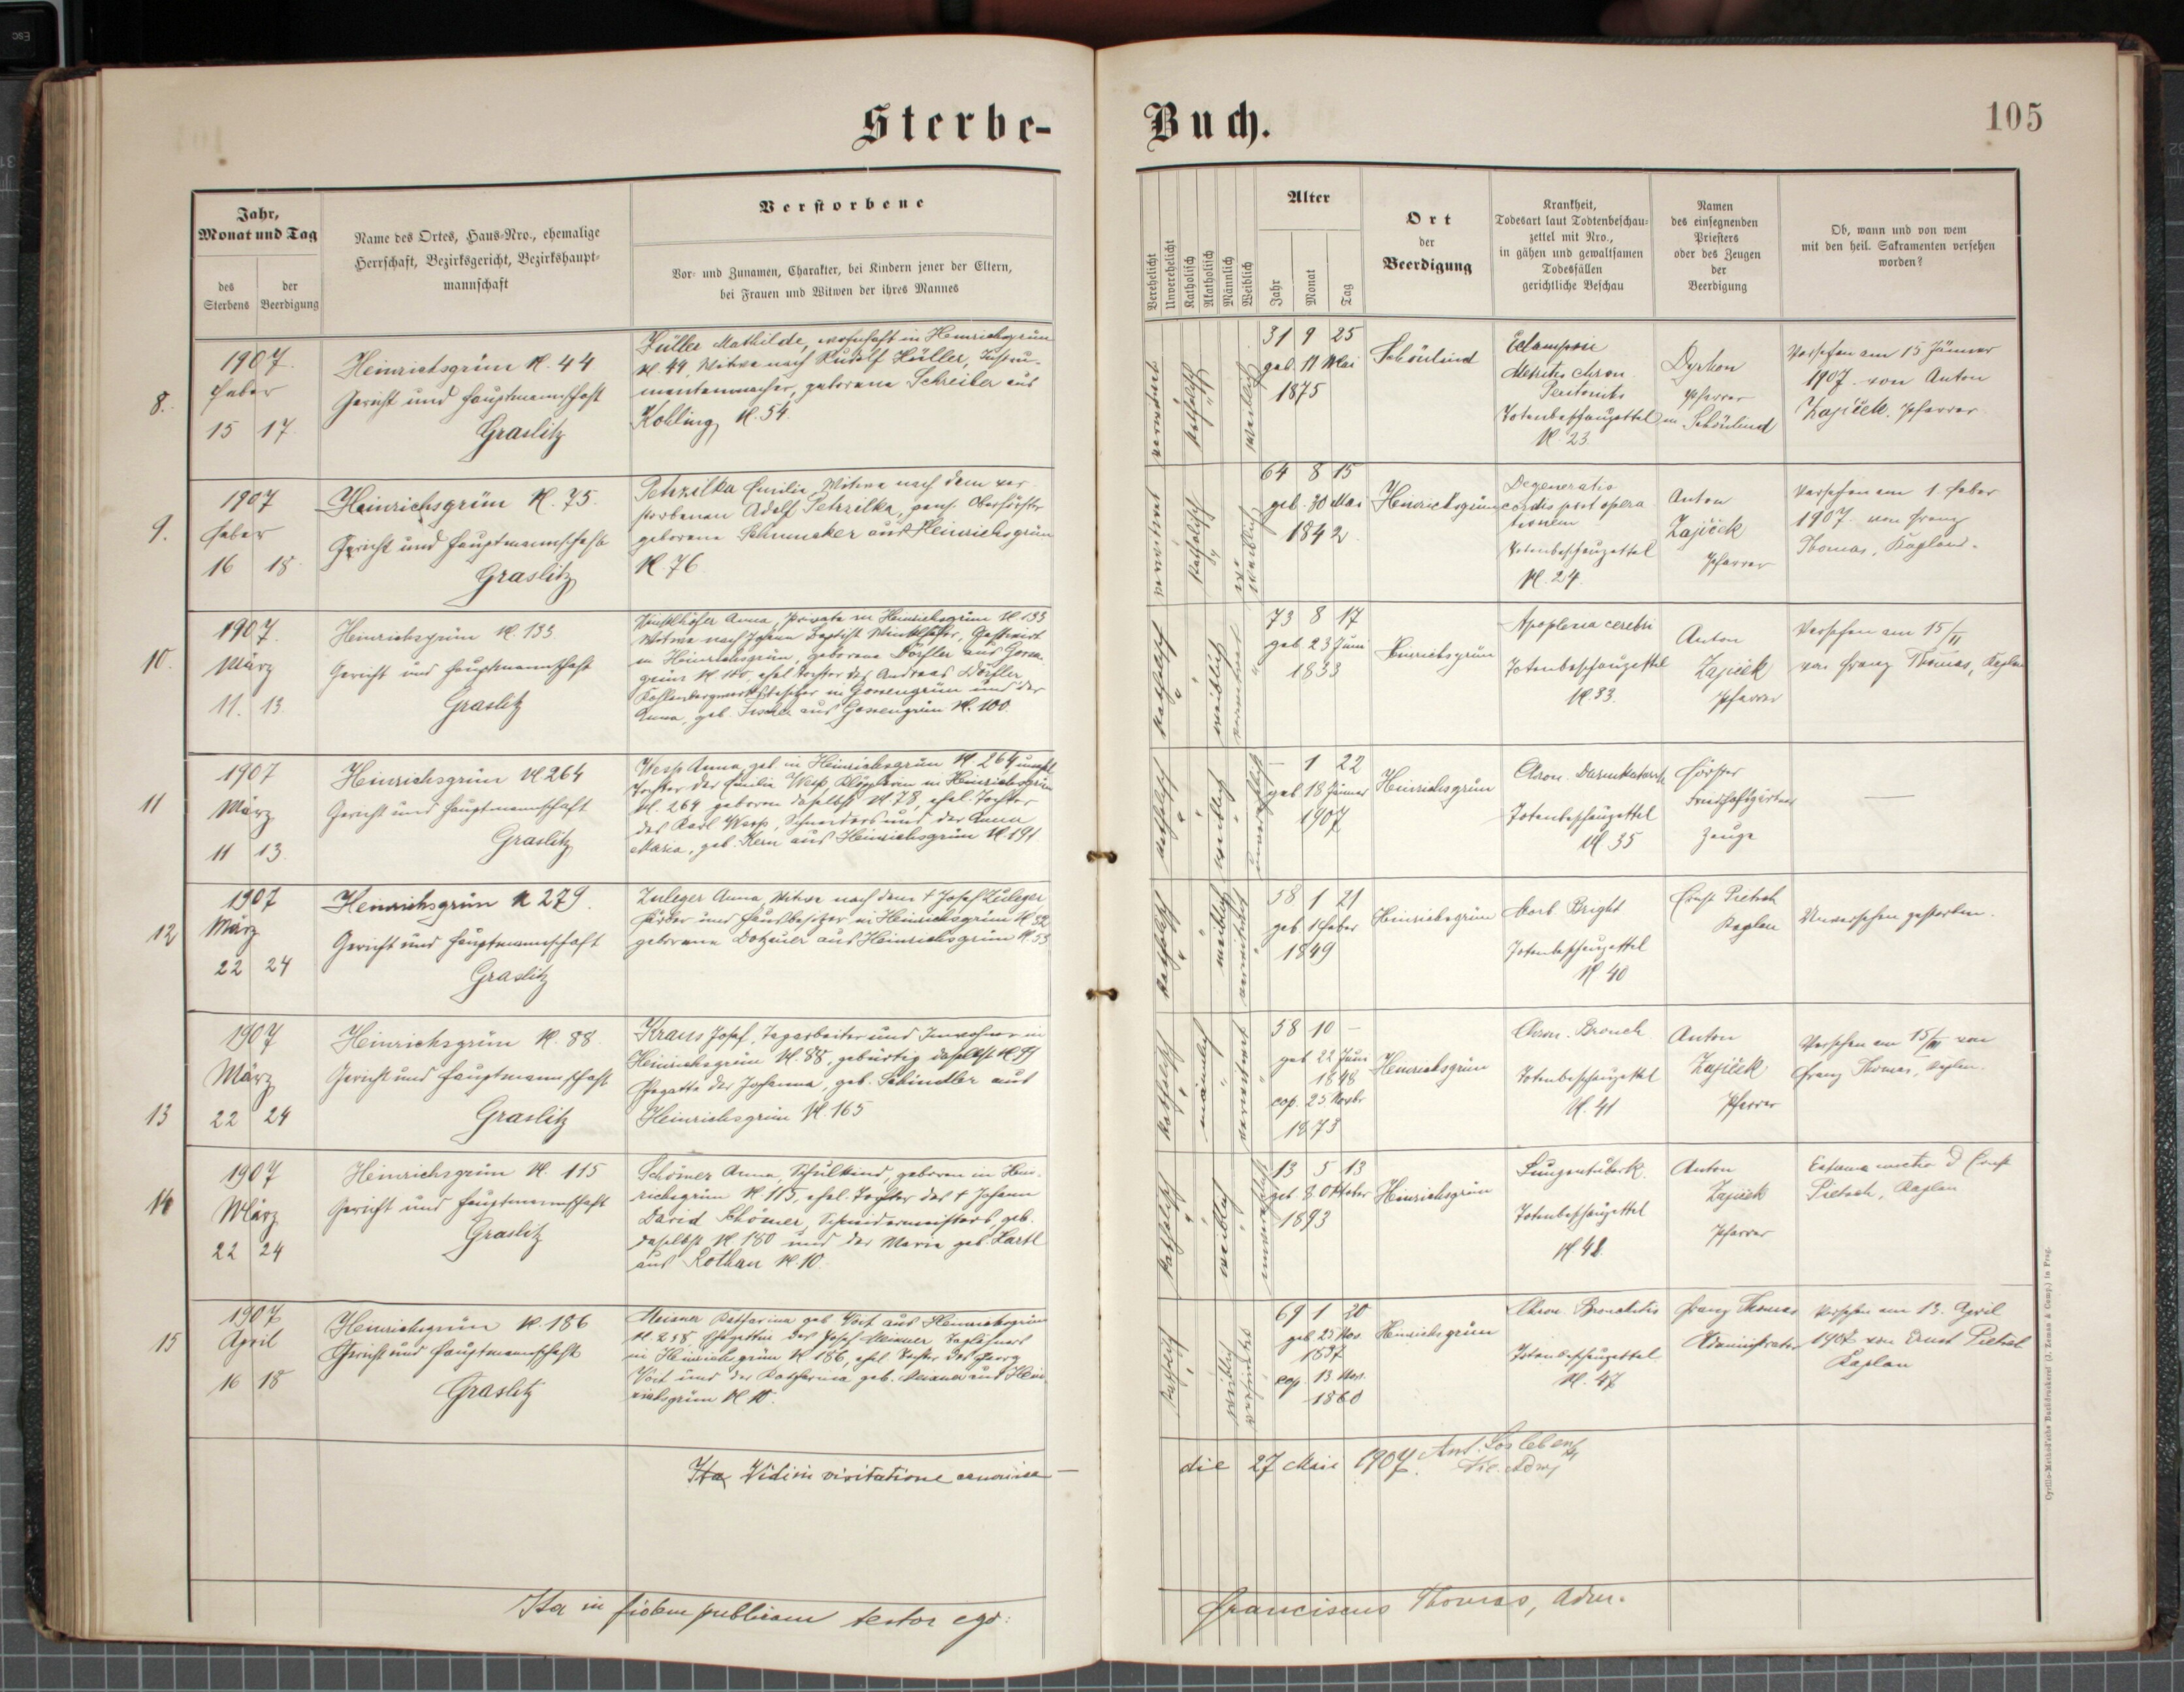 Sterbe-
Buch.
105
Jahr,
Monat und Tag
des
Sterbens
der
Beerdigung
Name des Ortes, Haus-Nro., ehemalige
Herrschaft, Bezirksgericht, Bezirkshaupt-
mannschaft
Verstorbene
Vor- und Zunamen, Charakter, bei Kindern jener der Eltern,
bei Frauen und Witwen der ihres Mannes
Verehelicht
Unverehelicht
Katholisch
Akatholisch
Männlich
Weiblich
Alter
Jahr
Monat
Tag
Ort
der
Beerdigung
Krankheit,
Todesart laut Todtenbeschau-
zettel mit Nro.,
in gähen und gewaltsamen
Todesfällen
gerichtliche Beschau
Namen
des einsegnenden
Priesters
oder des Zeugen
der
Beerdigung
Ob, wann und von wem
mit den heil. Sakramenten versehen
worden?
8.
1907.
Feber
15 17.
Heinrichsgrün N. 44
Gericht und Hauptmannschaft
Graslitz
Hüller Mathilde, wohnhaft in Heinrichsgrün
N. 44, Witwe nach Rudolf Hüller, Instru-
mentenmacher, geborene Schreiber aus
Kolling N. 54.
katholisch
weiblich
31 9 25
geb. 11 Mai
1875
Schönlind
Eclampsie
Metritis chron.
Totenbeschauzettel
N. 23
Pfarrer
in Schönlind
Versehen am 15 Jänner
1907 von Anton
Zajiček, Pfarrer
9.
1907
Feber
16 18
Heinrichsgrün N. 75.
Gericht und Hauptmannschaft
Graslitz
Petrzilka Emilie, Witwe nach dem ver-
storbenen Adolf Petrzilka, pens. Oberförster
geborene Schumaker aus Heinrichsgrün
N. 76
verwitwet
katholisch
weiblich
64 8 15
geb. 30 Mai
1842
Heinrichsgrün
Degeneratio
cordis post opera
tionem
Totenbeschauzettel
N. 24.
Anton
Zajiček
Pfarrer
Versehen am 1. Feber
1907 von Franz
Thomas, Kaplan.
10.
1907.
März
11. 13
Heinrichsgrün N. 133
Gericht und Hauptmannschaft
Graslitz
Winklhöfer Anna, Private in Heinrichsgrün N. 133
Witwe nach Johann Baptist Winklhöfer, Gastwirt
in Heinrichsgrün, geborene Dörfler aus Gossen
grün N. 100, ehel. Tochter des Andreas Dörfler
Kohlenbergwerksbesitzer in Gossengrün und der
Anna, geb. Fischer aus Gossengrün N. 100.
katholisch
weiblich
verwitwet
73 8 17
geb. 23 Juni
1833
Heinrichsgrün
Apoplexia cerebri
Totenbeschauzettel
N. 33.
Anton
Zajiček
Pfarrer
Versehen am 15/II
von Franz Thomas, Kaplan
11
1907
März
11 13.
Heinrichsgrün N. 264
Gericht und Hauptmannschaft
Graslitz
Wesp Anna, geb. in Heinrichsgrün N. 264 unehl.
Tochter der Emilie Wesp, Klöpplerin in Heinrichsgrün
N. 264 geboren daselbst N. 78, ehel. Tochter
des Karl Wesp, Schneiders und der Anna
Maria, geb. Kern aus Heinrichsgrün N. 191.
katholisch
weiblich
unverehelicht
— 1 22
geb. 18 Jänner
1907
Heinrichsgrün
Chron. Darmkatarrh
Totenbeschauzettel
N. 35
Förster
Friedhofsgärtner
Zeuge
—
12
1907
März
22 24
Heinrichsgrün N 279.
Gericht und Hauptmannschaft
Graslitz
Zuleger Anna, Witwe nach dem † Josef Zuleger
Färber und Hausbesitzer in Heinrichsgrün N. 52
geborene Dotzauer aus Heinrichsgrün N. 53
katholisch
weiblich
verwitwet
58 1 21
geb. 1 Feber
1849
Heinrichsgrün
Morb. Bright
Totenbeschauzettel
N. 40
Ernst Pietsch
Kaplan
Unversehen gestorben.
13
1907
März
22 24
Heinrichsgrün N. 88
Gericht und Hauptmannschaft
Graslitz
Kraus Josef, Tagarbeiter und Inwohner in
Heinrichsgrün N. 88, gebürtig daselbst N. 99
Ehegatte der Johanna, geb. Schindler aus
Heinrichsgrün N. 165
katholisch
männlich
verehelicht
58 10 —
geb. 22 Juni
1848
cop. 25. Novbr
1873
Heinrichsgrün
Chron. Bronch
Totenbeschauzettel
N. 41
Anton
Zajiček
Pfarrer
Versehen am 15/III von
Franz Thomas, Kaplan.
14
1907
März
22 24
Heinrichsgrün N. 115
Gericht und Hauptmannschaft
Graslitz
Schömer Anna, Schulkind, geboren in Hein-
richsgrün N. 115, ehel. Tochter des † Johann
David Schömer, Schneidermeisters, geb.
daselbst N. 180 und der Maria geb. Hartl
aus Rothau N. 10.
katholisch
weiblich
unverehelicht
13 5 13
geb. 8 Oktober
1893
Heinrichsgrün
Lungentuberk.
Totenbeschauzettel
N. 42
Anton
Zajiček
Pfarrer
Extrema unctio d Ernst
Pietsch, Kaplan
15
1907
April
16 18
Heinrichsgrün N. 186
Gericht und Hauptmannschaft
Graslitz
Meixner Katharina geb. Voit aus Heinrichsgrün
N. 258 Ehegattin des Josef Meixner Taglöhners
in Heinrichsgrün N. 186, ehel. Tochter des Georg
Voit und der Katharina geb. aus Hein-
richsgrün N. 10.
katholisch
weiblich
69 1 20
geb. 25 Nov.
1837
cop. 13. Nov.
1860
Heinrichsgrün
Chron. Bronchitis
Totenbeschauzettel
N. 47
Franz Thomas
Administrator
Versehen am 13. April
1907 von Ernst Pietsch
Kaplan
Ita Vidi in visitatione canonica —
die 27 Maii 1907.
Ita in fidem publicam testor ego:
Franciscus Thomas, Adm.
Cyrillo-Method'sche Buchdruckerei (J. Zeman & Comp.) in Prag.
Esc